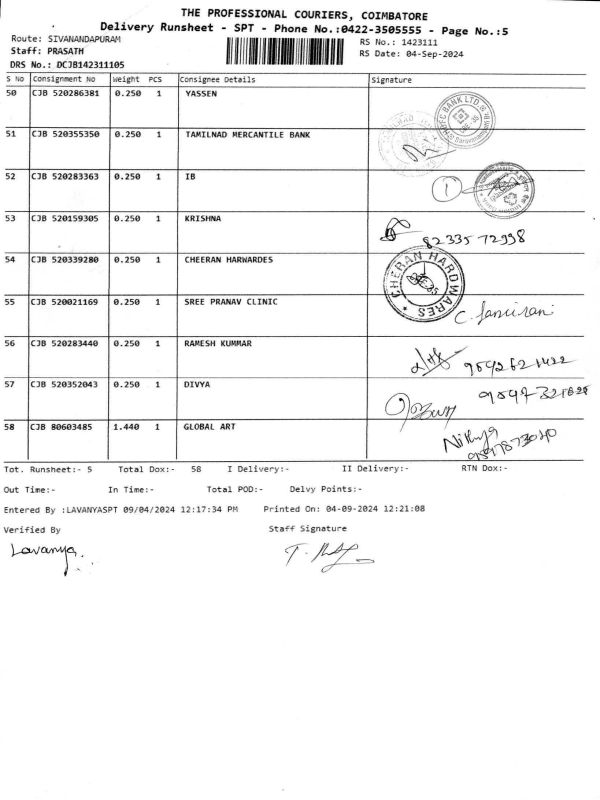 THE PROFESSIONAL COURIERS, COIMBATORE
Delivery Runsheet - SPT - Phone No.:0422-3505555 - Page No.:5
Route: SIVANANDAPURAM
RS No.: 1423111
Staff: PRASATH
RS Date: 04-Sep-2024
DRS No.: DCJB142311105
S No Consignment No Weight PCS Consignee Details Signature
50 CJB 520286381 0.250 1 YASSEN
BANK LTD.
51 CJB 520355350 0.250 1 TAMILNAD MERCANTILE BANK
52 CJB 520283363 0.250 1 IB
1
53 CJB 520159305 0.250 1 KRISHNA
82335 72998
54 CJB 520339280 0.250 1 CHEERAN HARWARDES
CHERAN HARDWARES
55 CJB 520021169 0.250 1 SREE PRANAV CLINIC
56 CJB 520283440 0.250 1 RAMESH KUMMAR
57 CJB 520352043 0.250 1 DIVYA
58 CJB 80603485 1.440 1 GLOBAL ART
Nithya
Tot. Runsheet:- 5 Total Dox:- 58 I Delivery:- II Delivery:- RTN Dox:-
Out Time:- In Time:- Total POD:- Delvy Points:-
Entered By :LAVANYASPT 09/04/2024 12:17:34 PM Printed On: 04-09-2024 12:21:08
Verified By Staff Signature
Lavanya.